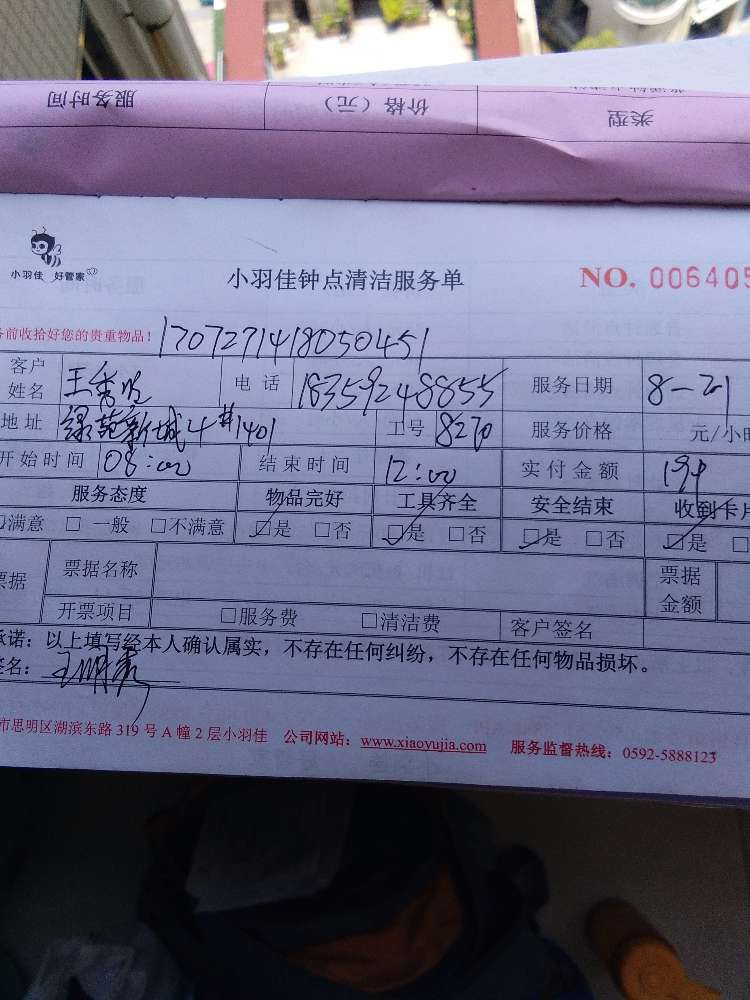 服务时间 价格（元） 类型
小羽佳 好管家
小羽佳钟点清洁服务单 NO. 006405
务前收拾好您的贵重物品！ 1707271418050451
客户姓名 王秀 电话 18359248855 服务日期 8-21
地址 绿苑新城4#1401 工号 8270 服务价格 元/小时
开始时间 08:00 结束时间 12:00 实付金额
服务态度 物品完好 工具齐全 安全结束 收到卡片
□满意 □一般 □不满意 □是 □否 □是 □否 □是 □否 □是 □
票据 票据名称 票据金额
开票项目 □服务费 □清洁费 客户签名
承诺：以上填写经本人确认属实，不存在任何纠纷，不存在任何物品损坏。
签名：
市思明区湖滨东路 319 号 A 幢 2 层小羽佳 公司网站：www.xiaoyujia.com 服务监督热线：0592-5888123